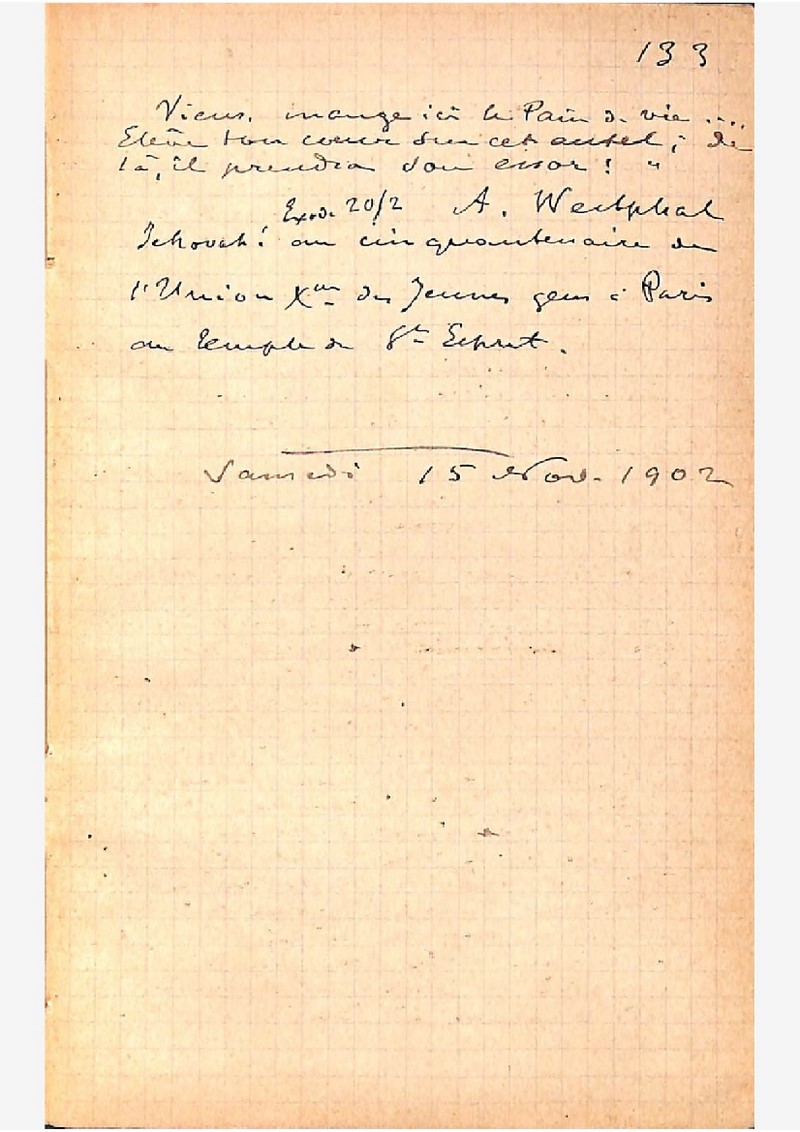 133
Viens, mange ici le Pain de vie ....
Elève ton cœur sur cet autel ; de
là, il prendra son essor ! "
Exode 20/2 A. Westphal
Jehovah ! au cinquantenaire de
l'Union Xne des Jeunes gens à Paris
au temple du St Esprit.
Samedi 15 Nov. 1902